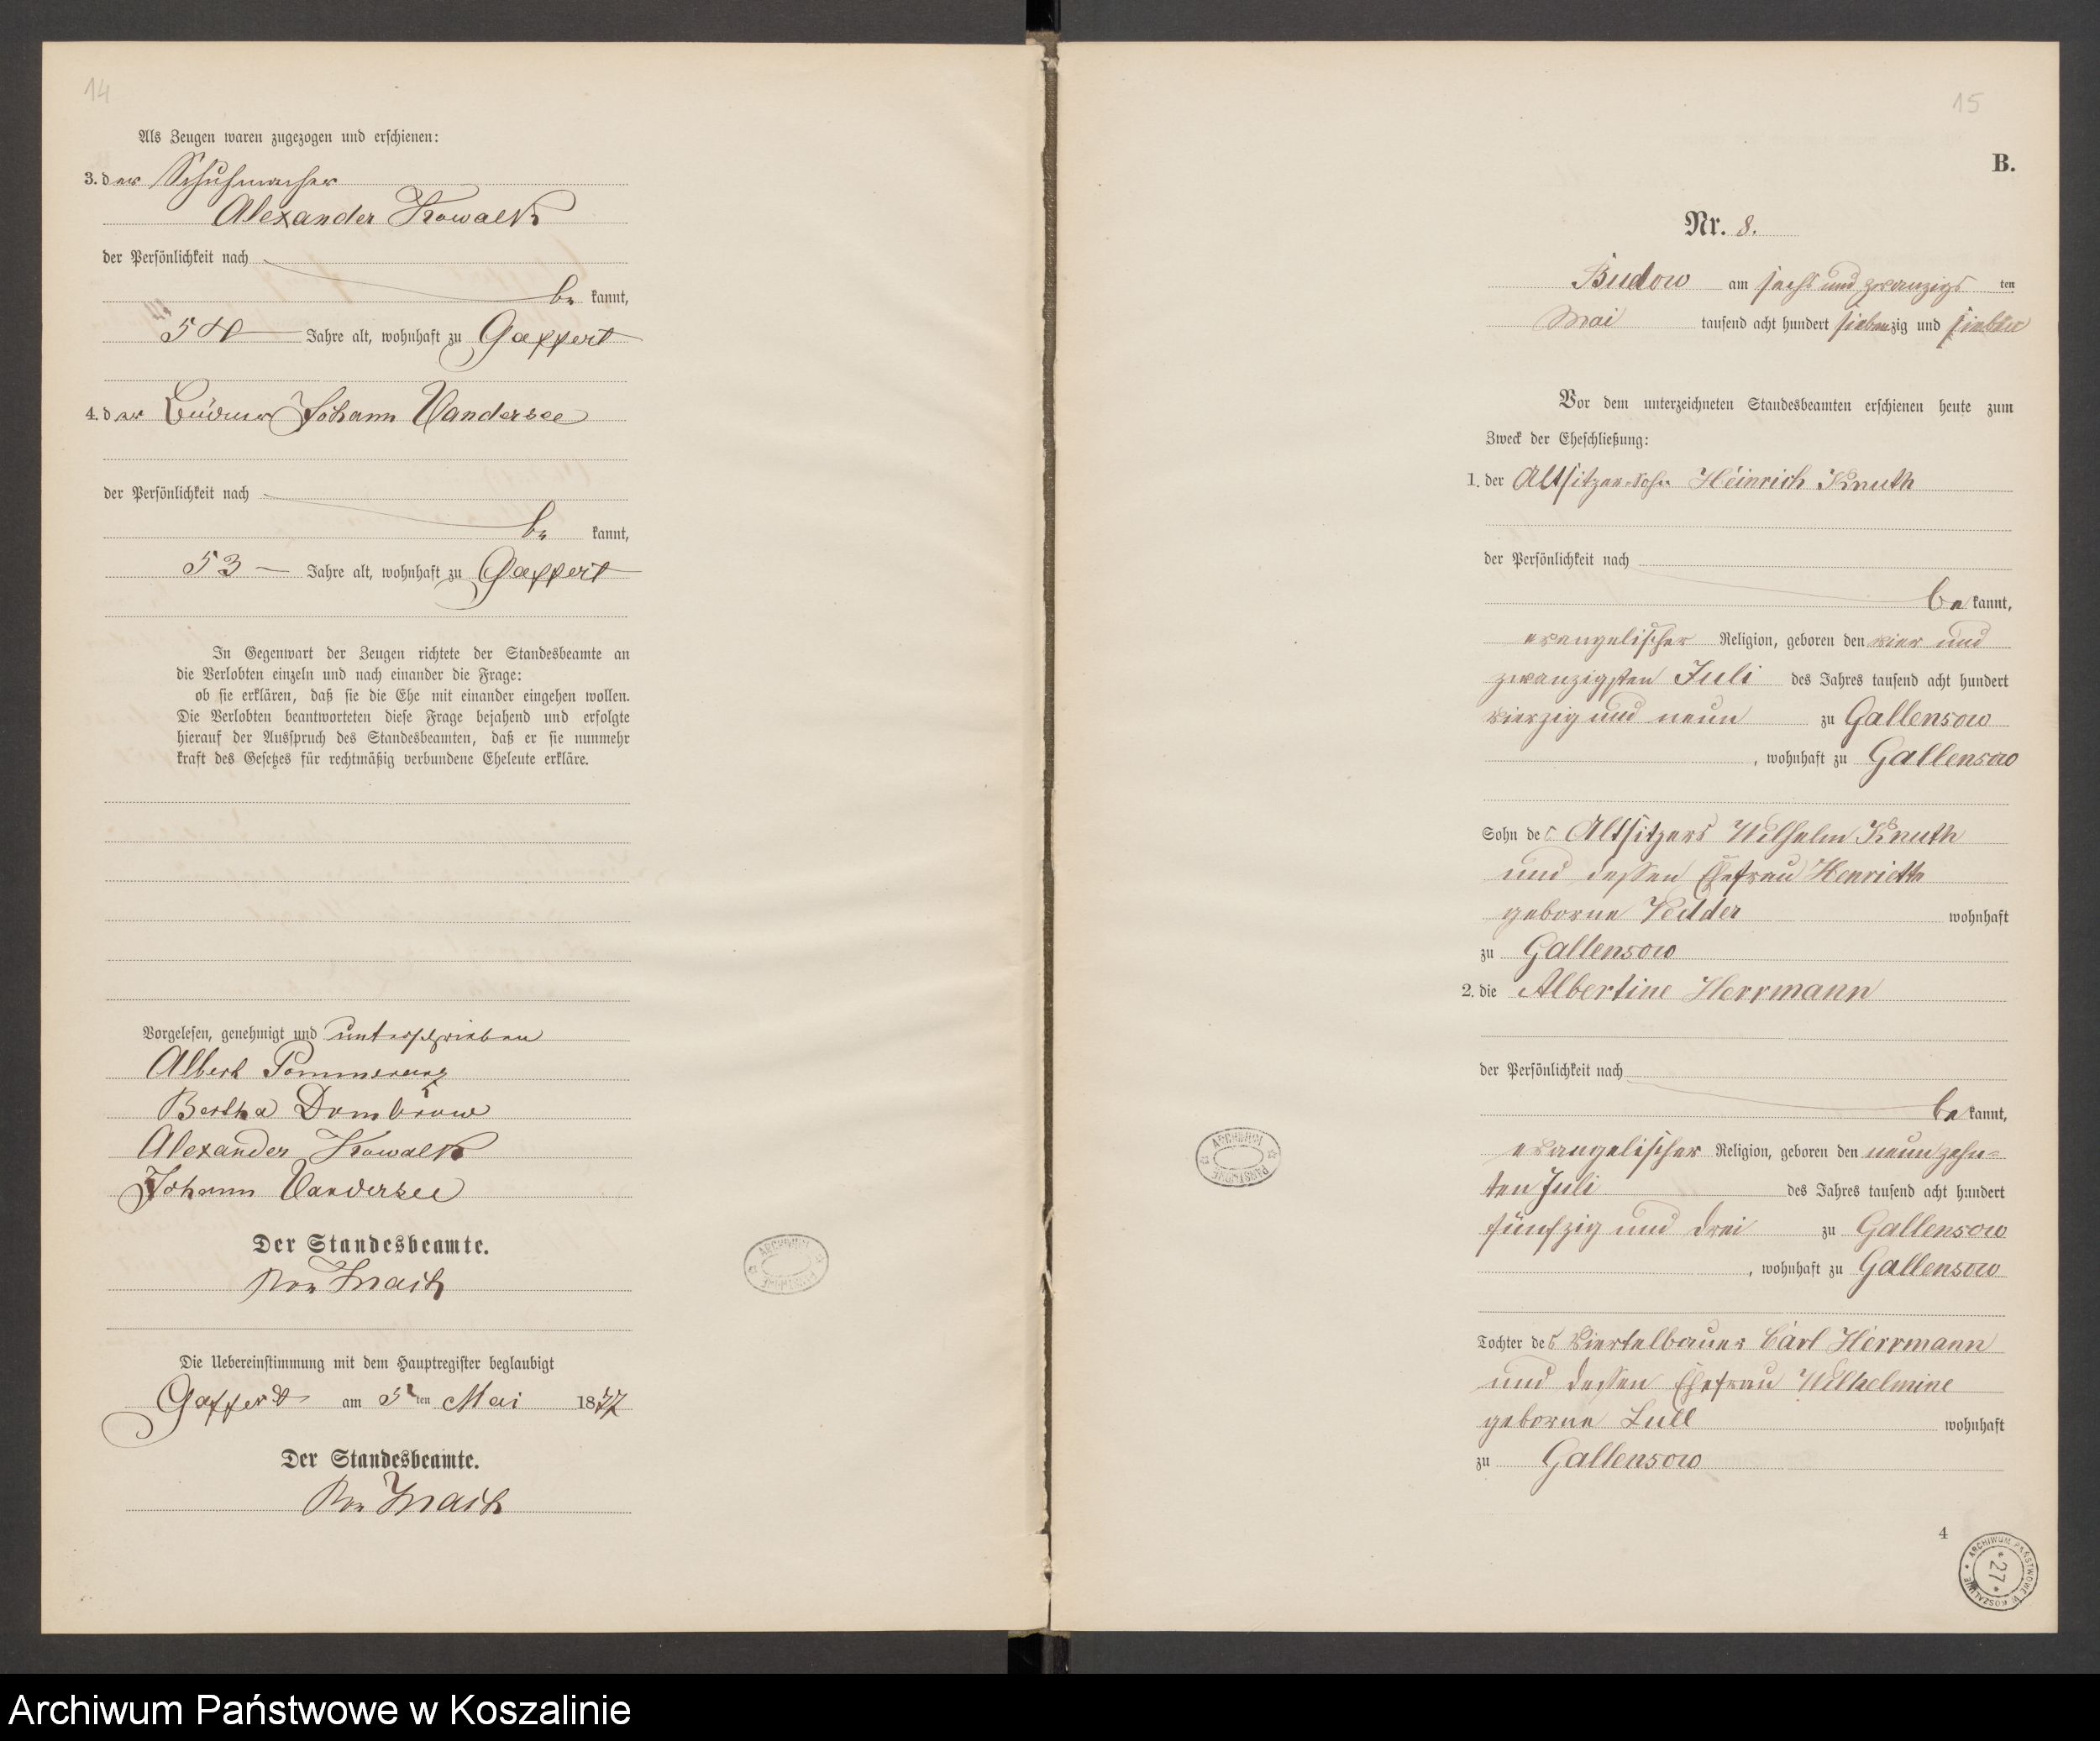 14
Als Zeugen waren zugezogen und erschienen:
3. der Schuhmacher
Alexander Kowalk
der Persönlichkeit nach
be kannt,
54 Jahre alt, wohnhaft zu Gaffert
4. der Büdner Johann Vandersee
der Persönlichkeit nach
be kannt,
53 Jahre alt, wohnhaft zu Gaffert
In Gegenwart der Zeugen richtete der Standesbeamte an
die Verlobten einzeln und nach einander die Frage:
ob sie erklären, daß sie die Ehe mit einander eingehen wollen.
Die Verlobten beantworteten diese Frage bejahend und erfolgte
hierauf der Ausspruch des Standesbeamten, daß er sie nunmehr
kraft des Gesetzes für rechtmäßig verbundene Eheleute erkläre.
Vorgelesen, genehmigt und unterschrieben
Albert Pommerenz
Bertha Dombrow
Alexander Kowalk
Johann Vandersee
Der Standesbeamte.
Die Uebereinstimmung mit dem Hauptregister beglaubigt
Gaffert am 5 ten Mai 1877
Der Standesbeamte.
15
B.
Nr. 8.
Budow am sechs und zwanzigs ten
Mai tausend acht hundert siebenzig und sieben
Vor dem unterzeichneten Standesbeamten erschienen heute zum
Zweck der Eheschließung:
1. der Altsitzer-Sohn Heinrich Knuth
der Persönlichkeit nach
be kannt,
evangelischer Religion, geboren den vier und
zwanzigsten Juli des Jahres tausend acht hundert
vierzig und neun zu Gallensow
, wohnhaft zu Gallensow
Sohn des Altsitzers Wilhelm Knuth
und dessen Ehefrau Henriette
geborne Vedder wohnhaft
zu Gallensow
2. die Albertine Herrmann
der Persönlichkeit nach
be kannt,
evangelischer Religion, geboren den neunzehn=
ten Juli des Jahres tausend acht hundert
fünfzig und drei zu Gallensow
, wohnhaft zu Gallensow
Tochter des Viertelbauer Carl Herrmann
und dessen Ehefrau Wilhelmine
geborne Lull wohnhaft
zu Gallensow
4
ARCHIWUM PAŃSTWOWE W KOSZALINIE
27
Archiwum Państwowe w Koszalinie